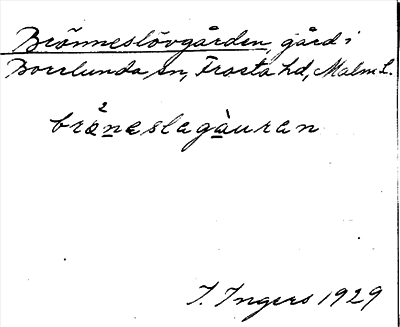 Brönneslövgården, gård i
Borrlunda sn, Frosta hd, Malm L.
brö²neslagàuran
I. Ingers 1929